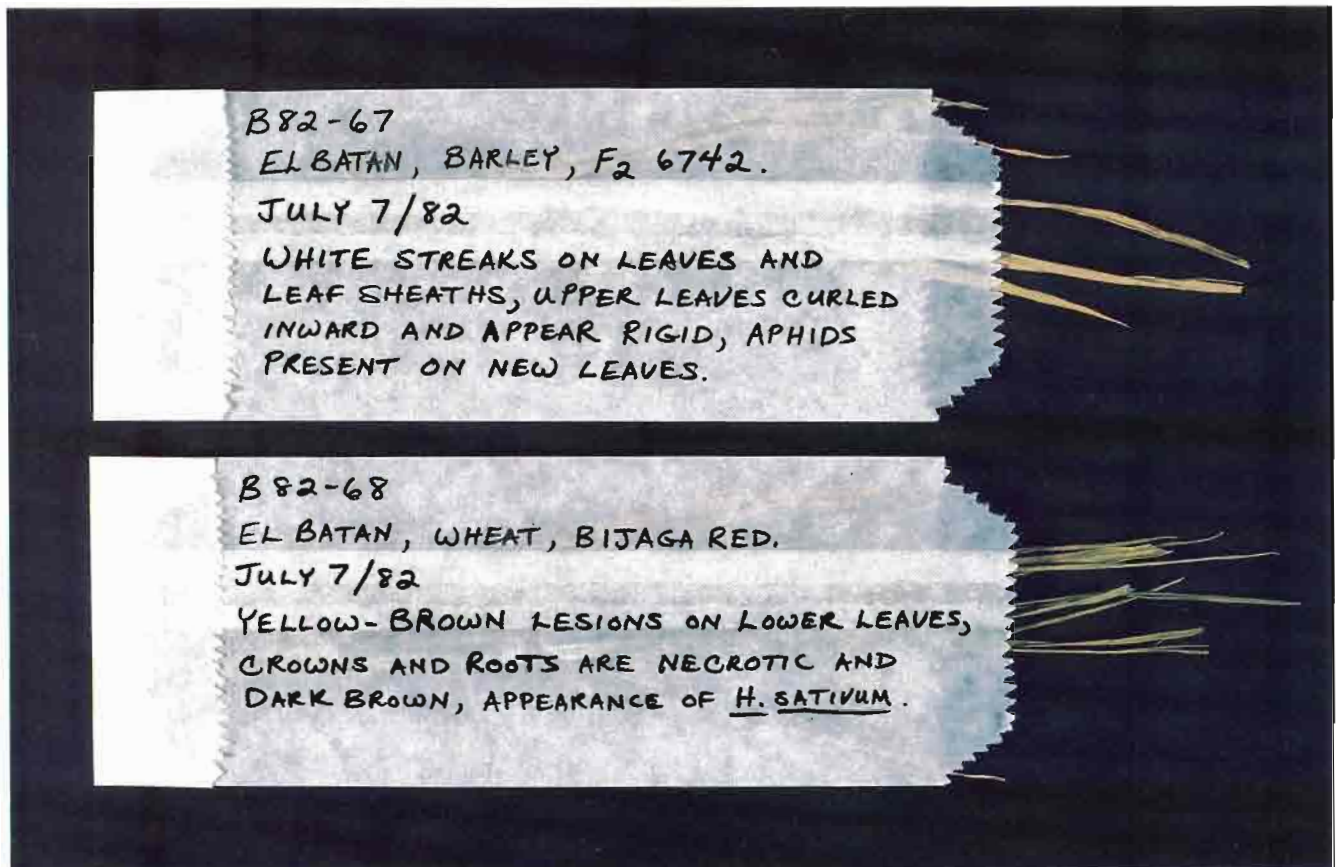 B82-67
EL BATAN, BARLEY, F₂ 6742.
JULY 7/82
WHITE STREAKS ON LEAVES AND
LEAF SHEATHS, UPPER LEAVES CURLED
INWARD AND APPEAR RIGID, APHIDS
PRESENT ON NEW LEAVES.
B82-68
EL BATAN, WHEAT, BIJAGA RED.
JULY 7/82
YELLOW-BROWN LESIONS ON LOWER LEAVES,
CROWNS AND ROOTS ARE NECROTIC AND
DARK BROWN, APPEARANCE OF H. SATIVUM.